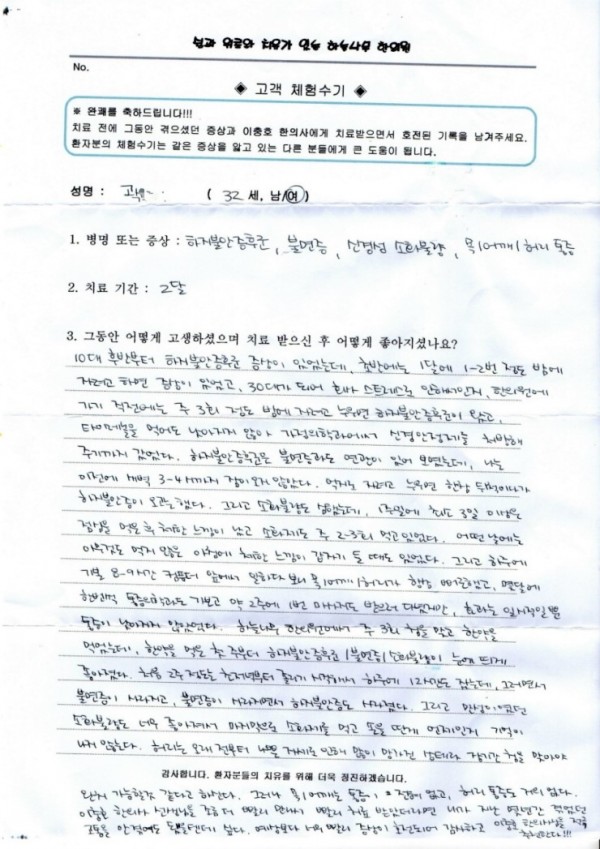 No.
◈ 고객 체험수기 ◈
※ 완쾌를 축하드립니다!!!
치료 전에 그동안 겪으셨던 증상과 이충호 한의사에게 치료받으면서 호전된 기록을 남겨주세요.
환자분의 체험수기는 같은 증상을 앓고 있는 다른 분들에게 큰 도움이 됩니다.
성명 : 고객 ( 32 세, 남/여 )
1. 병명 또는 증상 : 하지불안증후군, 불면증, 신경성 소화불량, 목/어깨/허리 통증
2. 치료 기간 : 2달
3. 그동안 어떻게 고생하셨으며 치료 받으신 후 어떻게 좋아지셨나요?
10대 후반부터 하지불안증후군 증상이 있었는데, 초반에는 1달에 1-2번 정도 밤에
자려고 하면 증상이 있었고, 30대가 되어 회사 스트레스로 인해서인지, 한의원에
가기 직전에는 주 3회 정도 밤에 자려고 누우면 하지불안증후군이 왔고,
타이레놀을 먹어도 나아지지 않아 가정의학과에서 신경안정제를 처방해
주기까지 갔었다. 하지불안증후군은 불면증과도 연관이 있어 보였는데, 나는
이전에 새벽 3-4시까지 잠이 오지 않았다. 억지로 자려고 누우면 항상
하지불안증이 오곤 했다. 그리고 소화불량도 심했는데, 1주일에 최소 3일 이상은
점심을 먹은 후 체한 느낌이 났고 소화제도 주 2-3회 먹고 있었다. 어떤 날에는
아무것도 먹지 않은 아침에 체한 느낌이 갑자기 들 때도 있었다. 그리고 하루에
기본 8-9시간 컴퓨터 앞에서 일하다 보니 목/어깨/허리가 항상 뻐근했고, 한달에
한번씩 통증의학과도 가보고 약 2주에 1번 마사지도 받으러 다녔지만, 효과는 일시적일 뿐
통증이 나아지지 않았었다. 하늘나무 한의원에서 주 3회 침을 맞고 한약을
먹었는데, 한약을 먹은 첫 주부터 하지불안증후군/불면증/소화불량이 눈에 띄게
좋아졌다. 처음 2주 정도는 초저녁부터 졸리기 시작해서 하루에 12시간도 잤는데, 그러면서
불면증이 사라지고, 불면증이 사라지면서 하지불안증도 사라졌다. 그리고 만성이였던
소화불량도 너무 좋아져서 마지막으로 소화제를 먹고 손을 딴게 언제인지 기억이
나지 않는다. 허리는 오래 전부터 나쁜 자세로 인해 많이 망가진 상태라 장기간 침을 맞아야
감사합니다. 환자분들의 치유를 위해 더욱 정진하겠습니다.
완치 가능할것 같다고 하신다. 그러나 목/어깨는 통증이 전혀 없고, 허리 통증도 거의 없다.
이충호 한의사 선생님을 조금 더 빨리 만나서 빨리 치료 받았더라면 내가 지난 몇년간 겪었던
고통을 안겪어도 됐을텐데 싶다. 예상보다 너무 빨리 증상이 호전되어 감사하고 이충호 한의사님을 적극
추천한다!!!